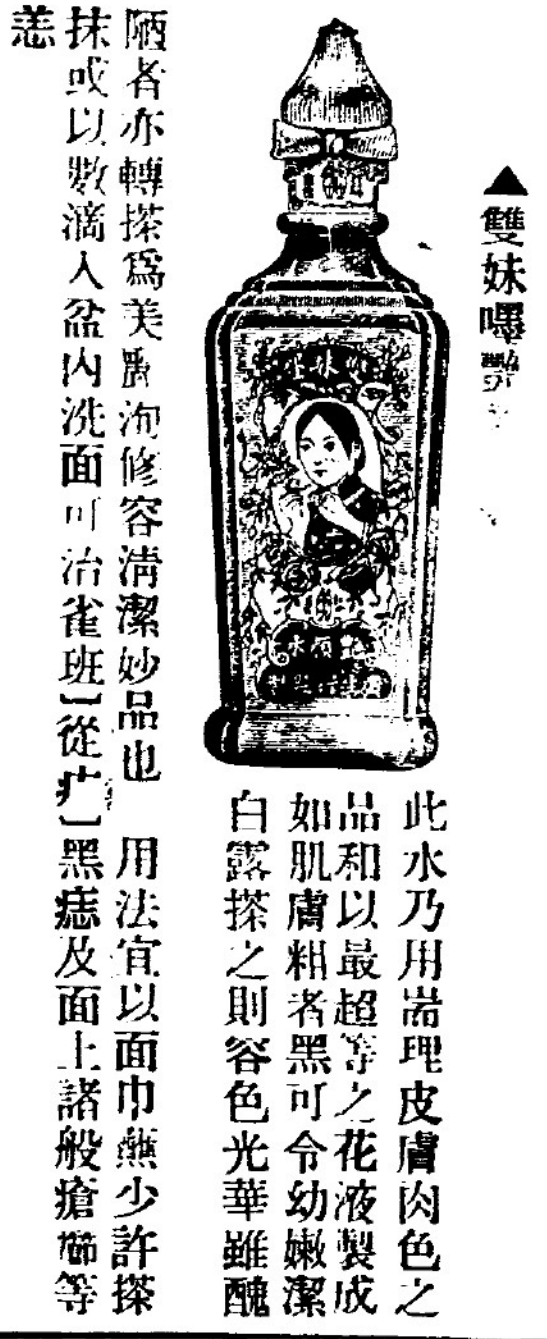 ▲雙妹嚜
此水乃用耑理皮膚肉色之
品和以最超等之花液製成
如肌膚粗者黑可令幼嫩潔
白露搽之則容色光華雖醜
陋者亦轉搽爲美 洵修容清潔妙品也 用法宜以面巾蘸少許搽
抹或以數滴入盆內洗面可治雀班【從疒】黑痣及面上諸般瘡癤等
恙